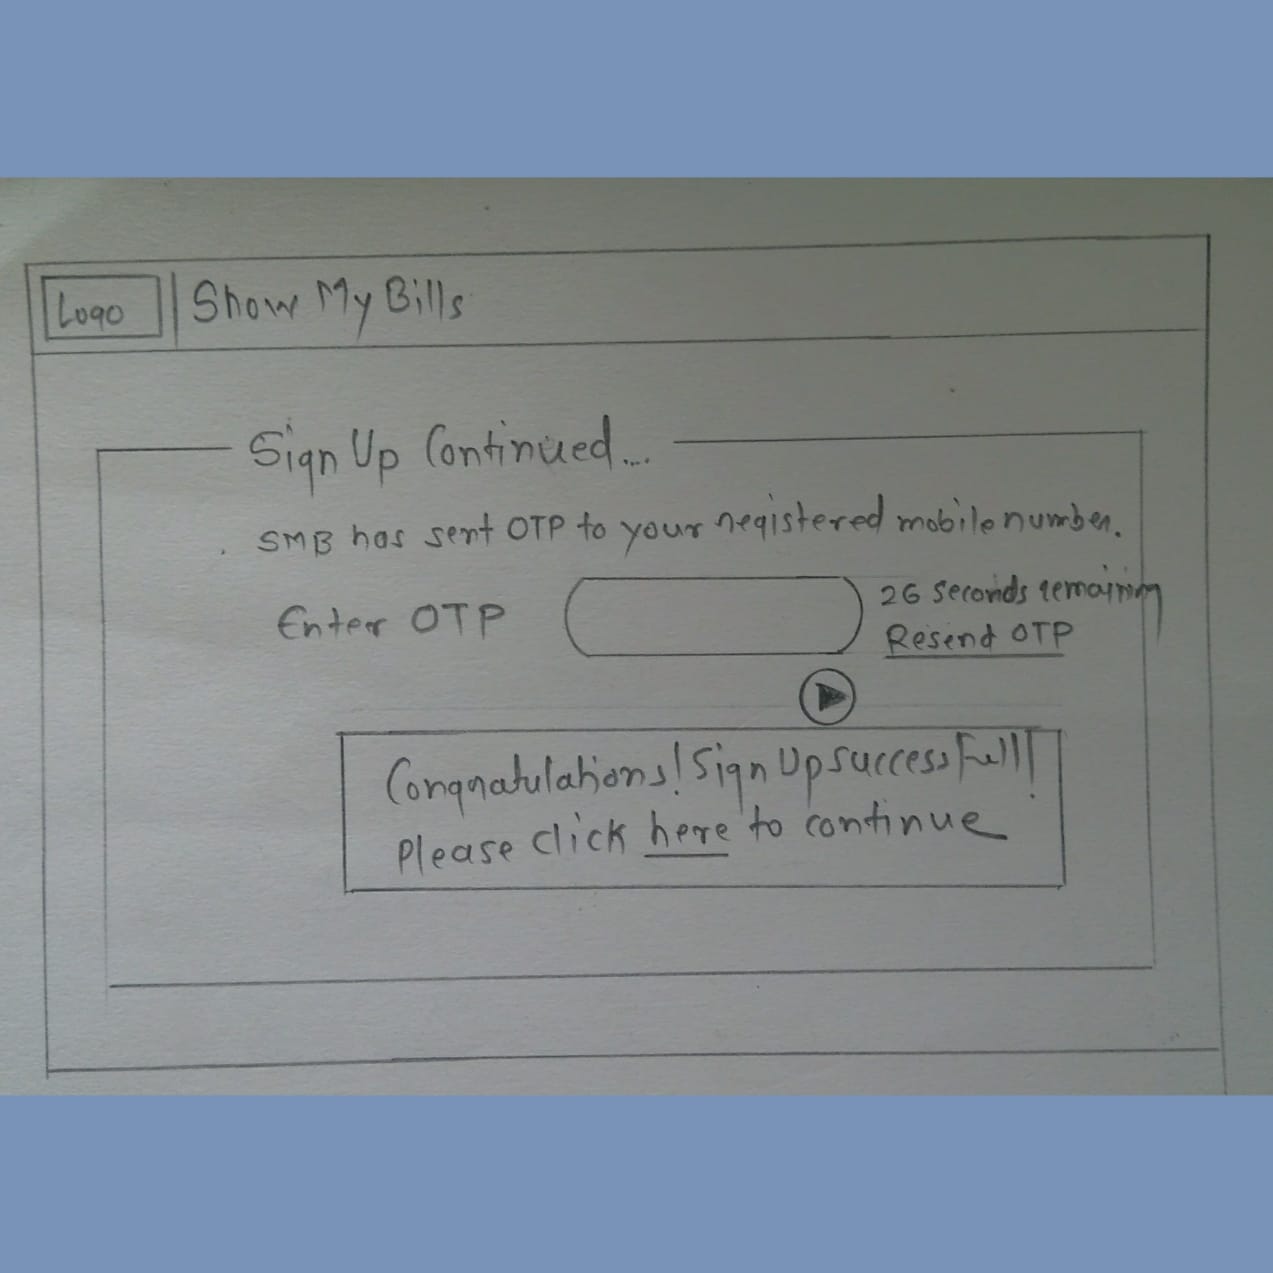 Logo
Show My Bills
Sign Up Continued...
SMB has sent OTP to your registered mobile number.
Enter OTP
26 seconds remaining
Resend OTP
Congratulations! Sign Up successfull!
Please click here to continue